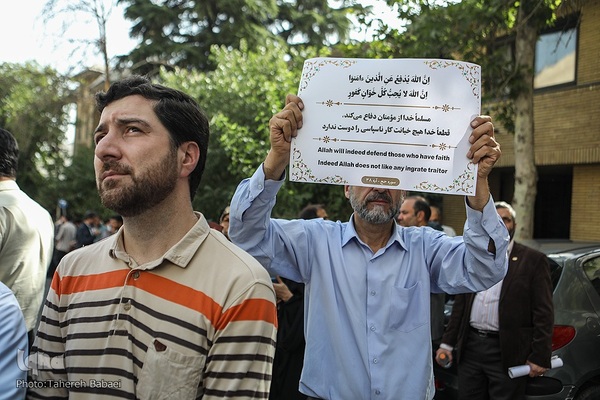 اِنَّ اللهَ یُدٰفِعُ عَنِ الَّذینَ ءامَنوا
اِنَّ اللهَ لا یُحِبُّ کُلَّ خَوّانٍ کَفورٍ
مسلماً خدا از مؤمنان دفاع می‌کند،
قطعاً خدا هیچ خیانت کار ناسپاسی را دوست ندارد
Allah will indeed defend those who have faith
Indeed Allah does not like any ingrate traitor
سوره حج - آیه ۳۸
iqna
Photo: Tahereh Babaei